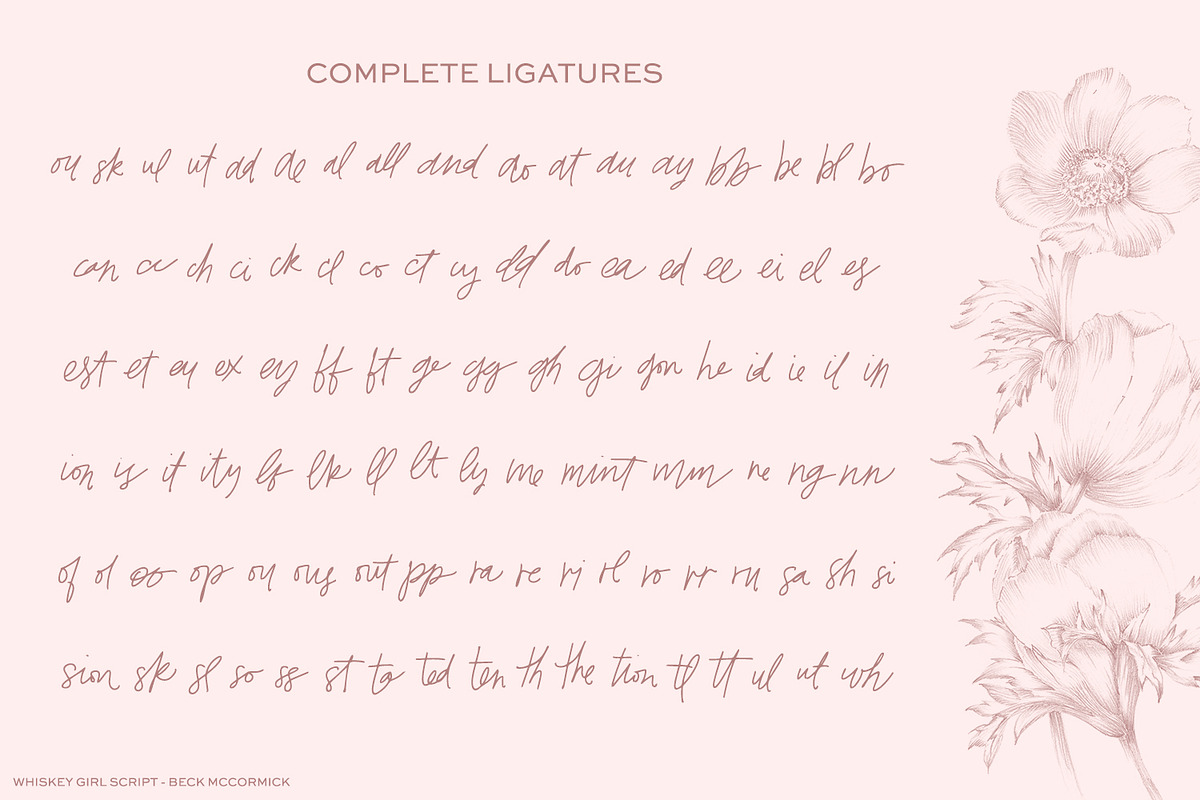 COMPLETE LIGATURES
ou sk ul ut ad de al all and ao at au ay bb be bl bo
can cc ch ci ck cl co ct cy dd do ea ed ee ei el es
est et eu ex ey ff ft ge gg gh gi gon he id ie il in
ion is it ity ls lk ll lt ly me mint mm ne ng nn
of ol oo op ou ous out pp ra re ri rl ro rr ru sa sh si
sion sk sl so ss st to ted ten th the tion tl tt ul ut wh
WHISKEY GIRL SCRIPT - BECK MCCORMICK